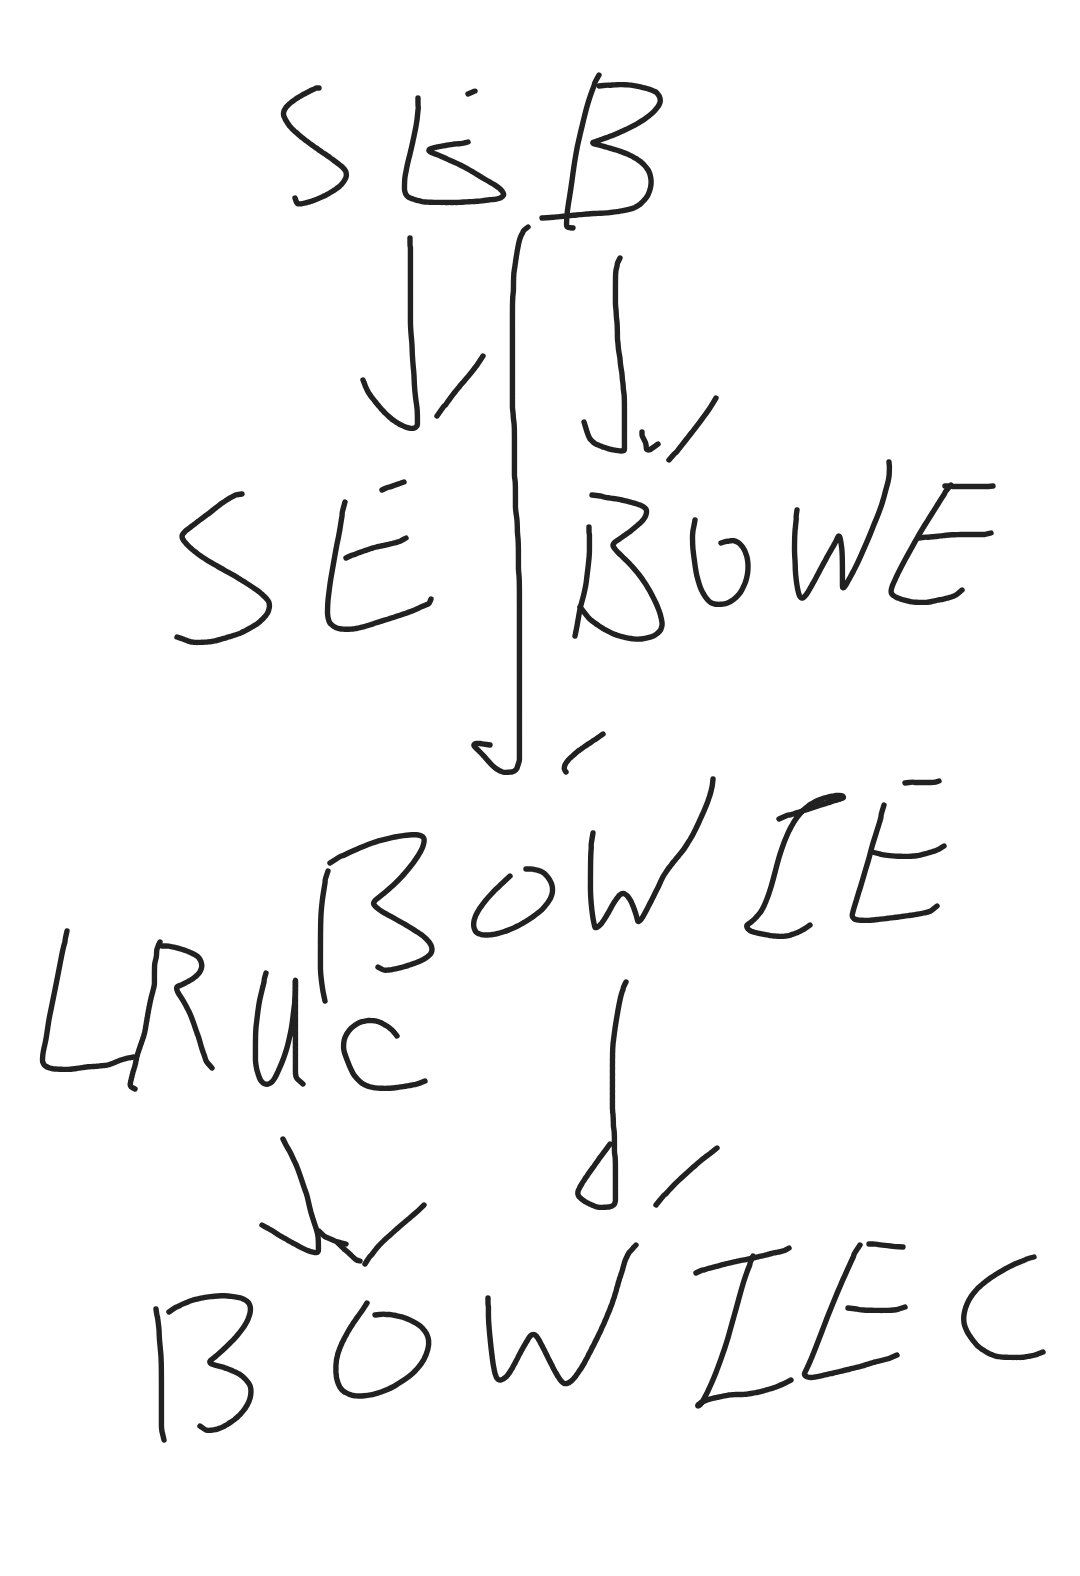 SEB
SE BOWE
BOWIE
LRUC
BOWIEC